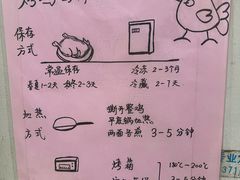 保存
方式
常温保存
春夏1-2天 秋冬2-3天
冷冻 2-3个月
冷藏 2-7天
加热
方式
撕开整鸡
平底锅加热
两面各煎 3-5分钟
烤箱
180℃-200℃
3-5